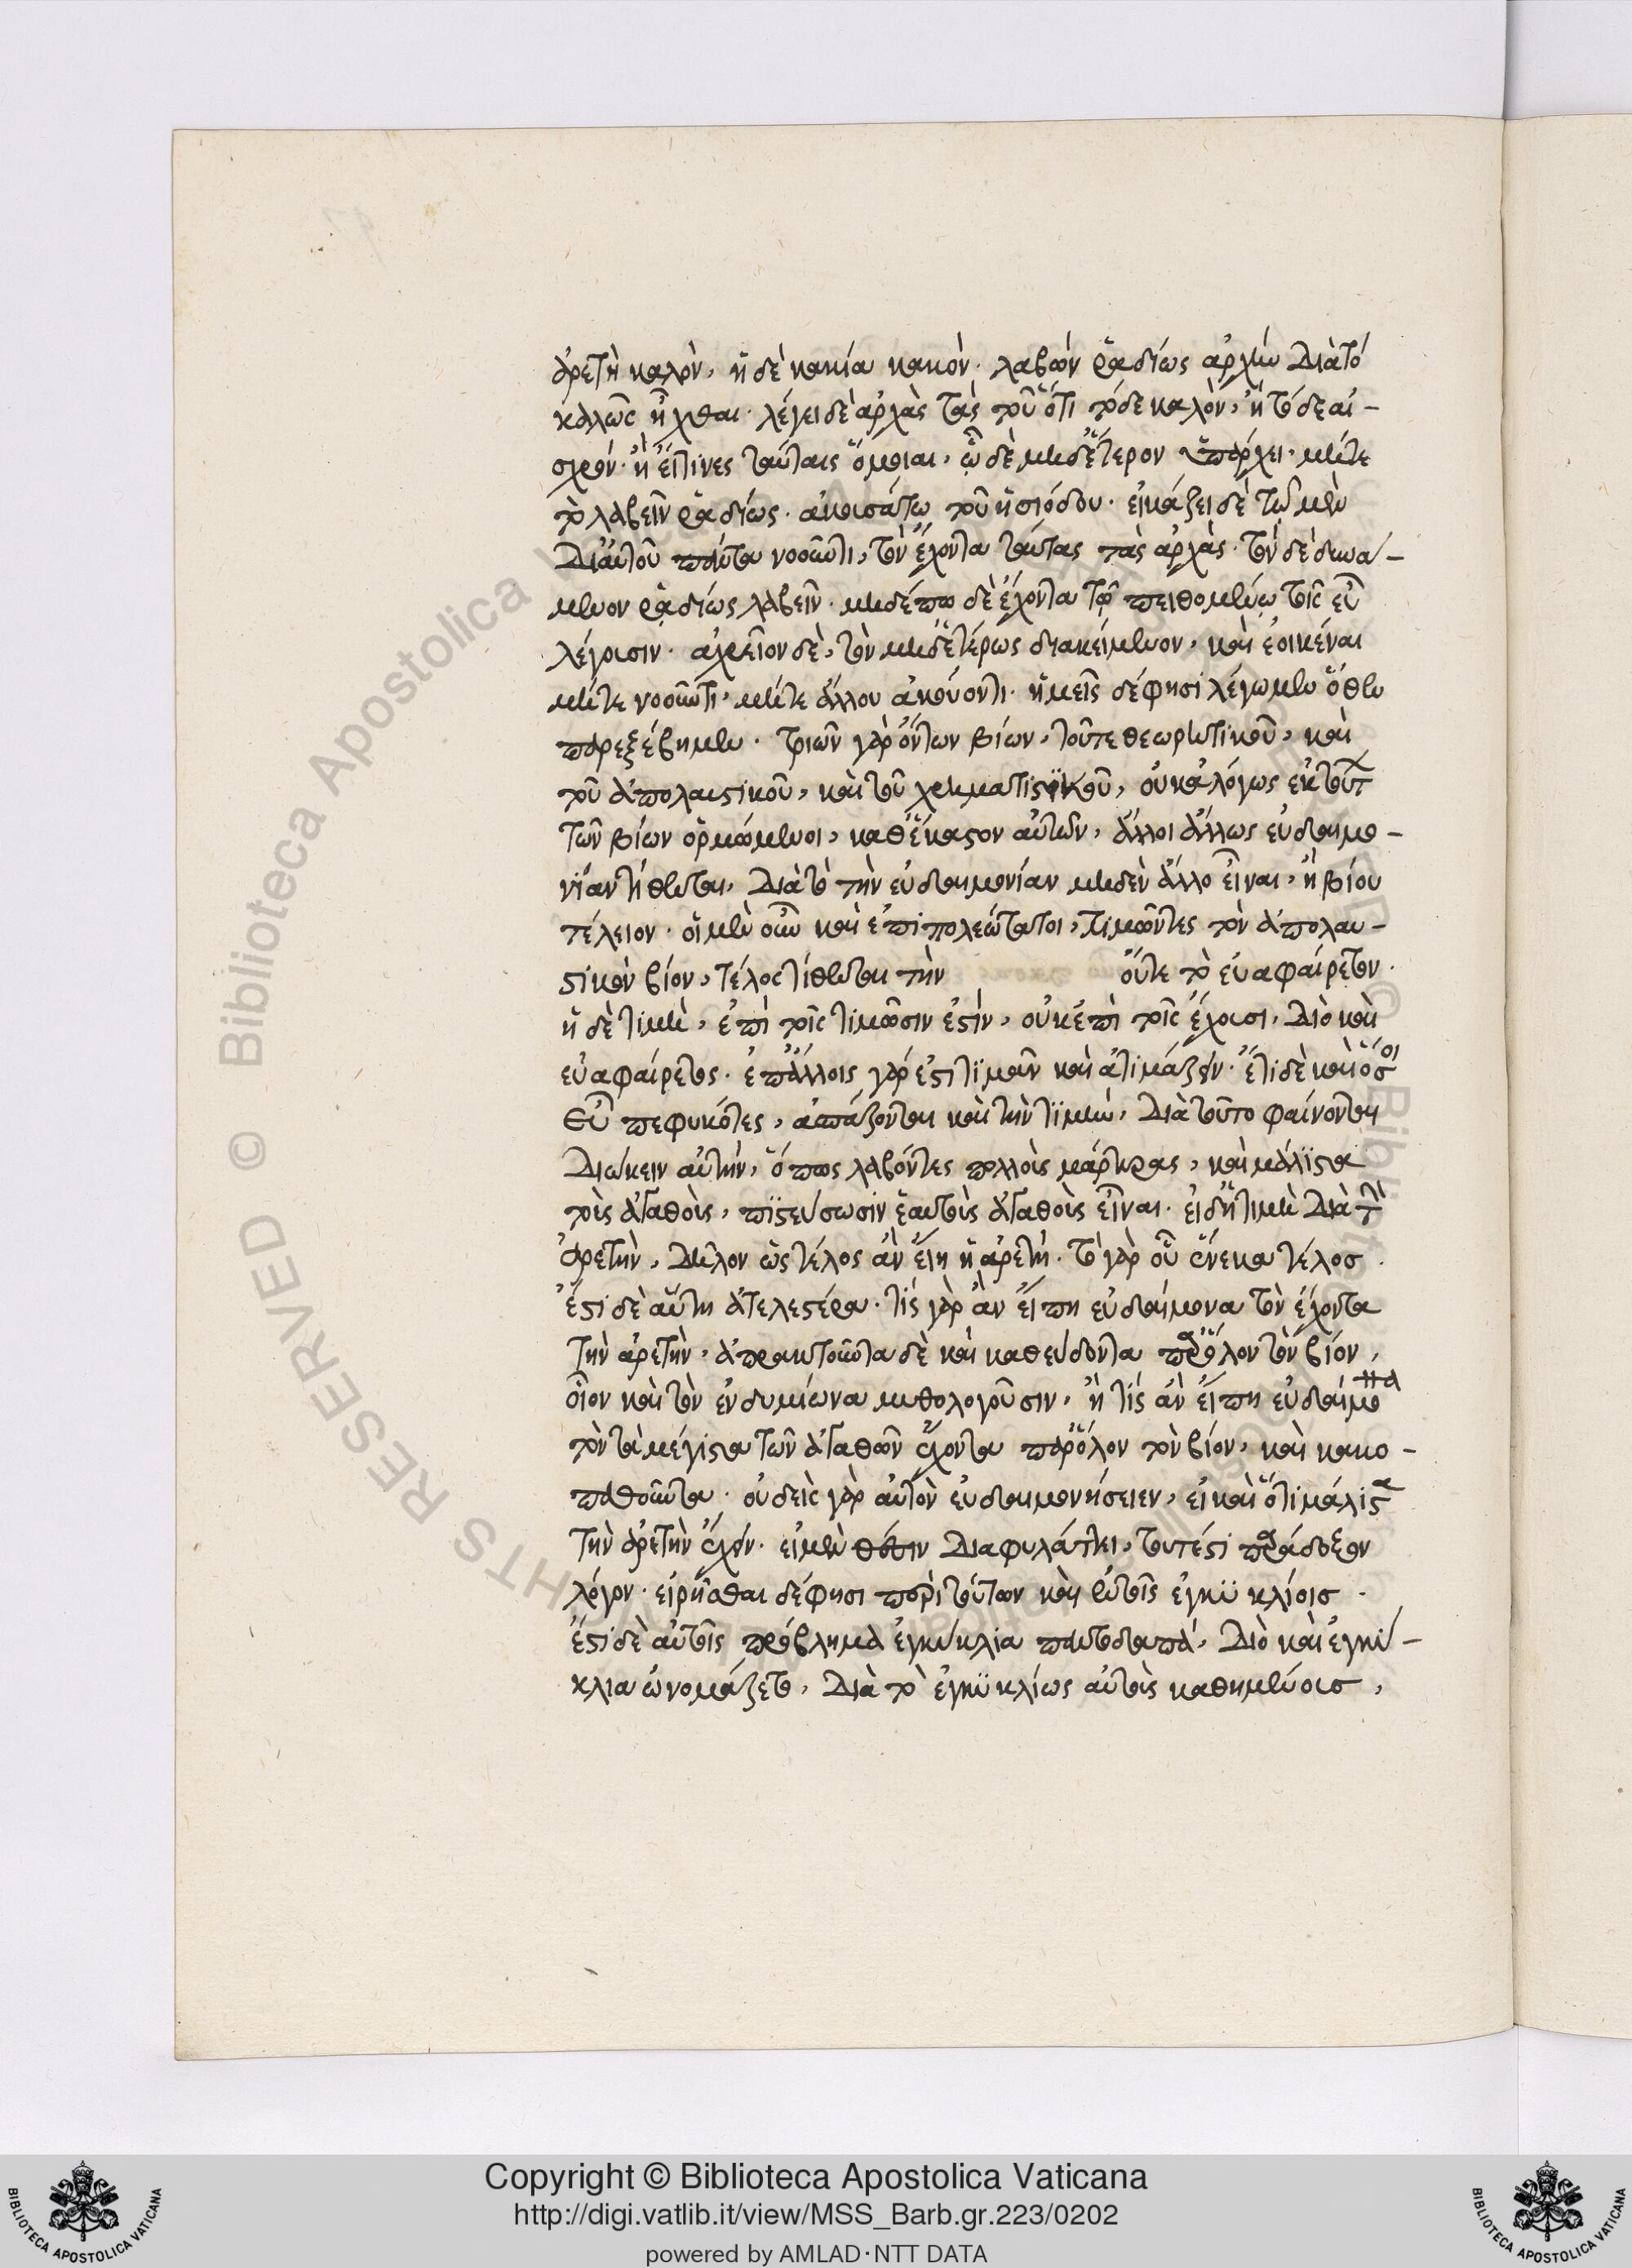 ἀρετὴ καλὸν, ἡ δὲ κακία κακὸν. λαβὼν ῥᾳδίως ἀρχὴν διὰ τὸ
καλῶς ἦχθαι. λέγει δὲ ἀρχὰς τὰς τοῦ ὅτι τόδε καλὸν, ἢ τόδε αἰ-
σχρόν. ἢ εἴ τινες ταύταις ὅμοιαι. ᾧ δὲ μηδἕτερον ὑπάρχει. μήτε
τὸ λαβεῖν ῥᾳδίως. ἀκουσάτω τοῦ ἡσιόδου. εἰκάζει δὲ τῷ μὲν
δι αὑτοῦ πάντα νοοῦντι, τὸν ἔχοντα ταύτας τὰς ἀρχὰς. τὸν δὲ δυνά-
μενον ῥᾳδίως λαβεῖν. μηδέπω δὲ ἔχοντα τῷ πειθομένῳ τοῖς εὖ
λέγουσιν. ἀχρεῖον δὲ, τὸν μηδετέρως διακείμενον, καὶ ἐοικέναι
μήτε νοοῦντι, μήτε ἄλλου ἀκούοντι. ἡμεῖς δέ φησι λέγωμεν ὅθεν
παρεξέβημεν. τριῶν γὰρ ὄντων βίων, τοῦ τε θεωρητικοῦ, καὶ
τοῦ ἀπολαυστικοῦ, καὶ τοῦ χρηματιστικοῦ, οὐκ ἀλόγως ἐκ τούτ
τῶν βίων ὁρμώμενοι, καθ ἕκαστον αὐτῶν, ἄλλοι ἄλλως εὐδαιμο-
νίαν τίθενται, διὰ τὸ τὴν εὐδαιμονίαν μηδὲν ἄλλο εἶναι, ἢ βίου
τέλειον. οἱ μὲν οὖν καὶ ἐπιπολεώτατοι, τιμῶντες τὸν ἀπολαυ-
στικὸν βίον, τέλος τίθενται τὴν οὔτε τὸ εὐαφαίρετον.
ἡ δὲ τιμὴ, ἐπὶ τοῖς τιμῶσιν ἐστὶν, οὐκ ἐπὶ τοῖς ἔχουσι, διὸ καὶ
εὐαφαίρετος. ἐπ ἄλλοις γάρ ἐστι τιμᾶν καὶ ἀτιμάζειν. ἔτι δὲ καὶ ὅσοι
εὖ πεφυκότες, ἀσπάζονται καὶ τὴν τιμὴν, διὰ τοῦτο φαίνονται
διώκειν αὐτὴν, ὅπως λαβόντες πολλοὺς μάρτυρας, καὶ μάλιστα
τοὺς ἀγαθοὺς, πιστεύσωσιν ἑαυτοὺς ἀγαθοὺς εἶναι. εἰ δ ἡ τιμὴ διὰ τὴν
ἀρετὴν, δῆλον ὡς τέλος ἂν εἴη ἡ ἀρετή. τὸ γὰρ οὗ ἕνεκα τέλος.
ἔστι δὲ αὕτη ἀτελεστέρα. τίς γὰρ ἂν εἴπῃ εὐδαίμονα τὸν ἔχοντα
τὴν ἀρετὴν, ἀπρακτοῦντα δὲ καὶ καθεύδοντα παρ ὅλον τὸν βίον,
οἷον καὶ τὸν ἐνδυμίωνα μυθολογοῦσιν, ἢ τίς ἂν εἴπῃ εὐδαίμονα
τὸν τὰ μέγιστα τῶν ἀγαθῶν ἔχοντα παρ ὅλον τὸν βίον, καὶ κακο-
παθοῦντα. οὐδεὶς γὰρ αὐτὸν εὐδαιμονήσειεν, εἰ καὶ ὅτι μάλιστα
τὴν ἀρετὴν ἔχειν. εἰ μὴ θέσιν διαφυλάττει, τουτέστι παράδοξον
λόγον. εἰρῆσθαι δέ φησι περὶ τούτων καὶ ἐν τοῖς ἐγκυκλίοις.
ἔστι δὲ αὐτοῖς προβλήματα ἐγκύκλια παντοδαπά, διὸ καὶ ἐγκύ-
κλια ὠνομάζετο, διὰ τὸ ἐγκυκλίως αὐτοὺς καθημένους,
Copyright © Biblioteca Apostolica Vaticana
http://digi.vatlib.it/view/MSS_Barb.gr.223/0202
powered by AMLAD·NTT DATA